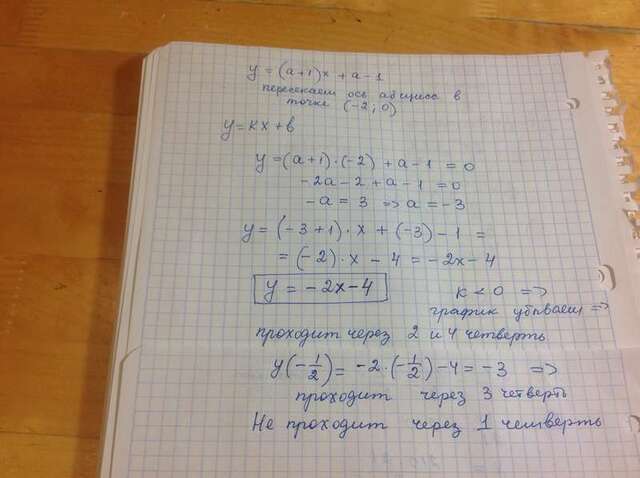 y = (a+1)x + a - 1
пересекает ось абцисс в
точке (-2; 0)
y = kx + b
y = (a+1)·(-2) + a - 1 = 0
-2a - 2 + a - 1 = 0
-a = 3 => a = -3
y = (-3+1)·x + (-3) - 1 =
= (-2)·x - 4 = -2x - 4
y = -2x - 4
k < 0 =>
график убывает =>
проходит через 2 и 4 четверть
y(-1/2) = -2·(-1/2) - 4 = -3 =>
проходит через 3 четверть
Не проходит через 1 четверть